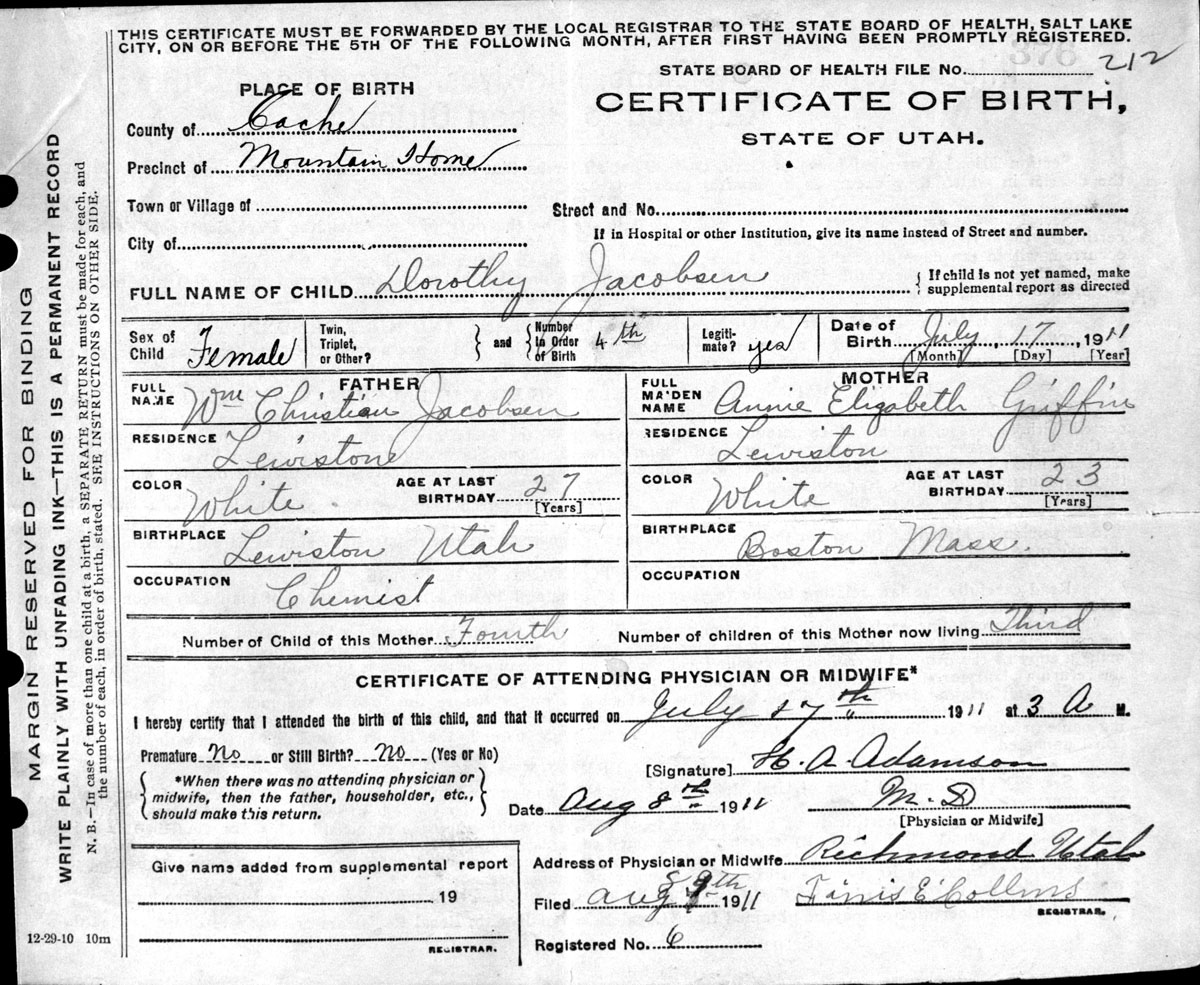 THIS CERTIFICATE MUST BE FORWARDED BY THE LOCAL REGISTRAR TO THE STATE BOARD OF HEALTH, SALT LAKE
CITY, ON OR BEFORE THE 5TH OF THE FOLLOWING MONTH, AFTER FIRST HAVING BEEN PROMPTLY REGISTERED.
STATE BOARD OF HEALTH FILE No. 212
CERTIFICATE OF BIRTH,
STATE OF UTAH.
PLACE OF BIRTH
County of Cache
Precinct of Mountain Home
Town or Village of
Street and No.
City of
If in Hospital or other Institution, give its name instead of Street and number.
FULL NAME OF CHILD Dorothy Jacobsen { If child is not yet named, make
supplemental report as directed
Sex of Child Female Twin, Triplet, or Other? } and { Number in Order of Birth 4th Legiti-mate? yes Date of Birth July, 17, 1911
[Month] [Day] [Year]
FATHER
FULL NAME Wm Christian Jacobsen
RESIDENCE Lewistone
COLOR White AGE AT LAST BIRTHDAY 27 [Years]
BIRTHPLACE Lewiston Utah
OCCUPATION Chemist
MOTHER
FULL MAIDEN NAME Annie Elizabeth Griffin
RESIDENCE Lewiston
COLOR White AGE AT LAST BIRTHDAY 23 [Years]
BIRTHPLACE Boston Mass.
OCCUPATION
Number of Child of this Mother Fourth Number of children of this Mother now living Third
CERTIFICATE OF ATTENDING PHYSICIAN OR MIDWIFE*
I hereby certify that I attended the birth of this child, and that it occurred on July 17th 1911 at 3 A M.
Premature No or Still Birth? No (Yes or No)
{ *When there was no attending physician or
midwife, then the father, householder, etc.,
should make this return. }
[Signature] H. A. Adamson
Date Aug 8th 1911 M. D
[Physician or Midwife]
Give name added from supplemental report
19
REGISTRAR.
Address of Physician or Midwife Richmond Utah
Filed Aug 9th 1911 Finis E Collins
REGISTRAR.
Registered No. 6
12-29-10 10m
MARGIN RESERVED FOR BINDING
WRITE PLAINLY WITH UNFADING INK—THIS IS A PERMANENT RECORD
N. B.—In case of more than one child at a birth, a SEPARATE RETURN must be made for each, and
the number of each, in order of birth, stated. SEE INSTRUCTIONS ON OTHER SIDE.